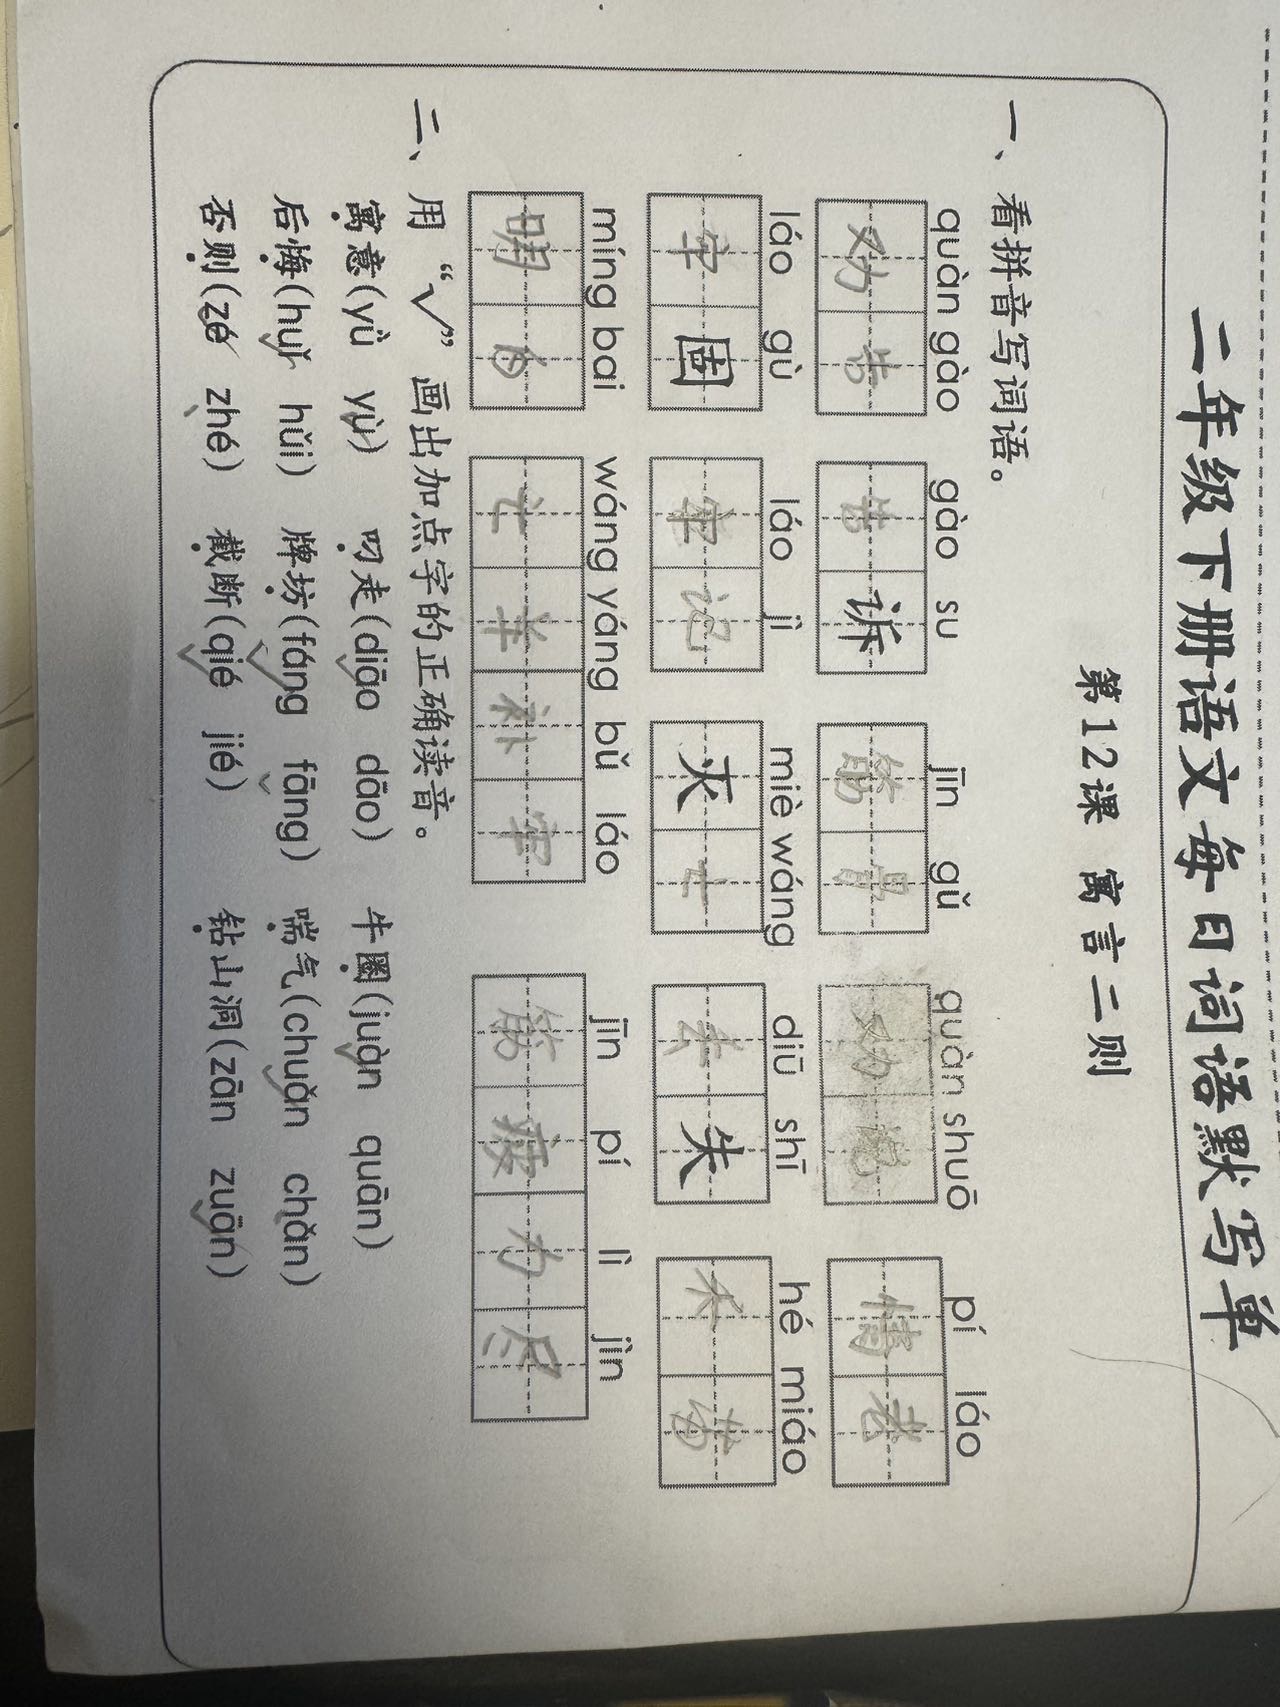 二年级下册语文每日词语默写单
第12课 寓言二则
一、看拼音写词语。
quàn gào gào su jīn gǔ quàn shuō pí láo
劝告 告诉 筋骨 劝说 情老
láo gù láo jì miè wáng diū shī hé miáo
牢固 牢记 灭亡 去失 禾苗
míng bai wáng yáng bǔ láo jīn pí lì jìn
明白 亡羊补牢 筋疲力尽
二、用“√”画出加点字的正确读音。
寓意(yǔ yù) 叼走(diāo dāo) 牛圈(juàn quān)
后悔(huǐ hǔi) 牌坊(fáng fāng) 喘气(chuǎn chǎn)
否则(zé zhé) 截断(qié jié) 钻山洞(zān zuān)